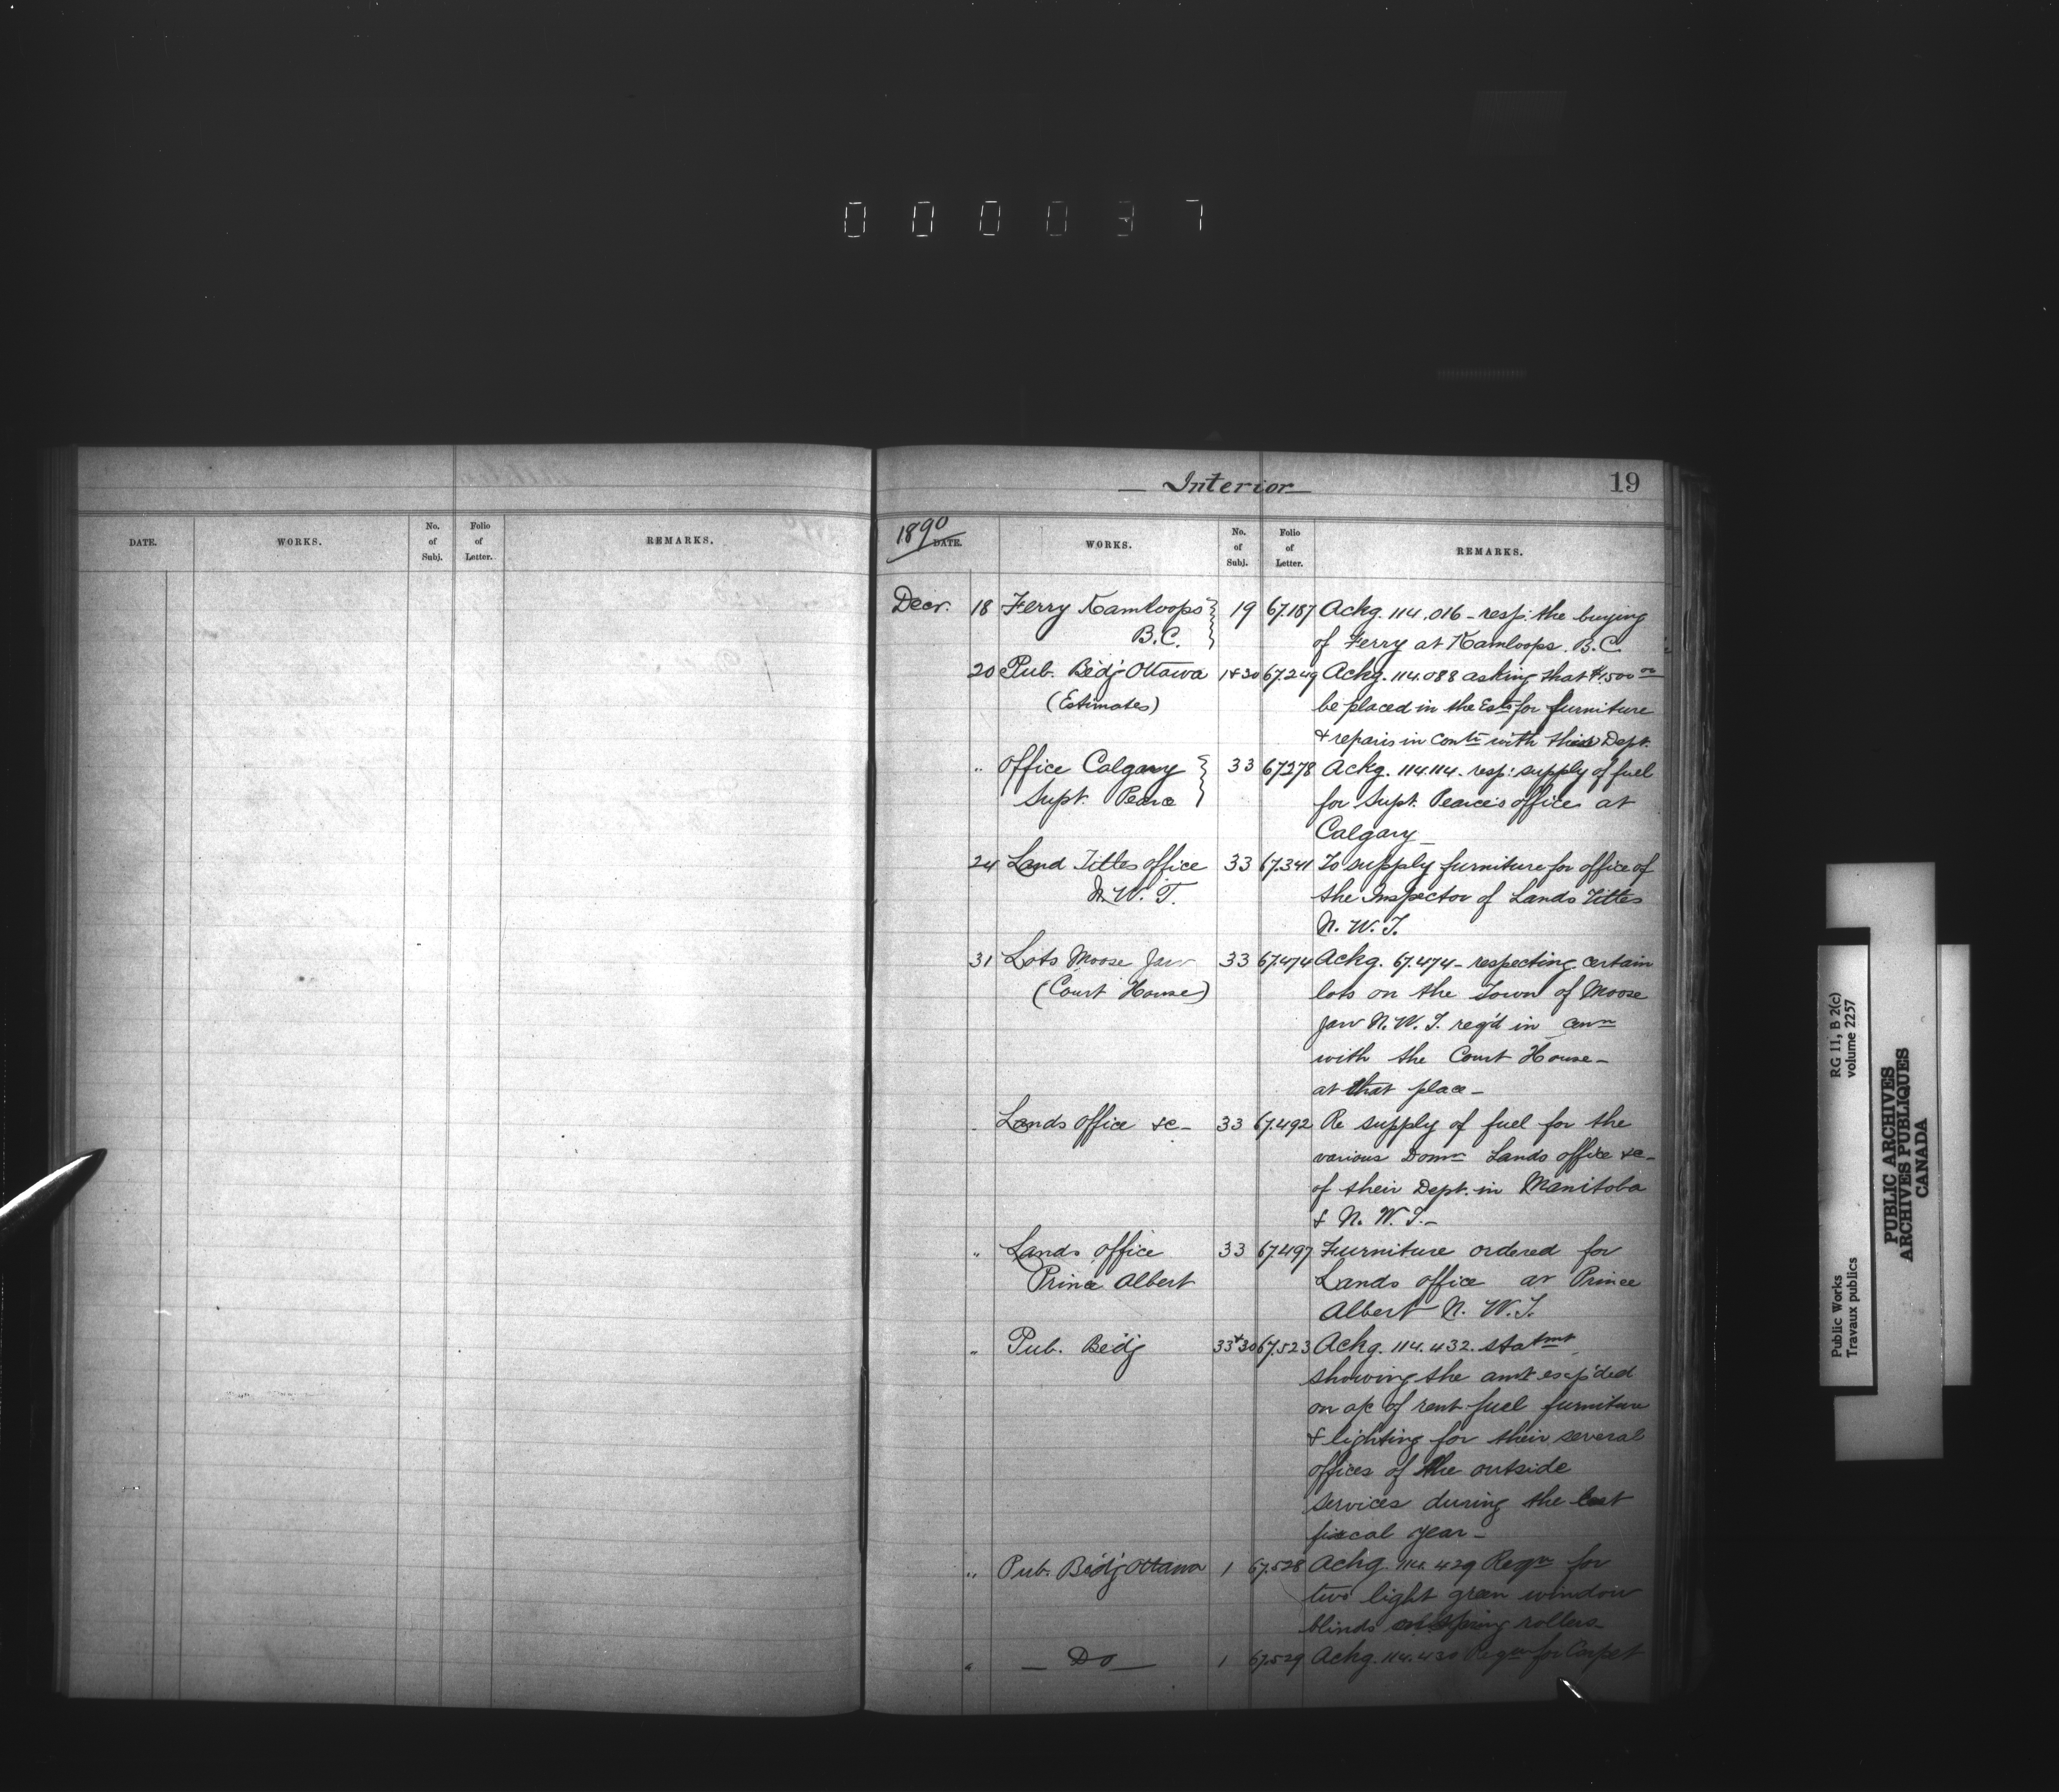 0 0 0 0 3 7
DATE. WORKS. No. of Subj. Folio of Letter. REMARKS.
— Interior — 19
1890 DATE. WORKS. No. of Subj. Folio of Letter. REMARKS.
Decr. 18 Ferry Kamloops 19 67.187 Ackg. 114.016 - resp: the buying
B.C. of Ferry at Kamloops. B.C.
20 Pub. Bldg Ottawa 1+30 67.249 Ackg. 114.088 asking that $1.500 00
(Estimates) be placed in the Ests for furniture
+ repairs in with their Dept.
" Office Calgary 33 67278 Ackg. 114.114 - resp: supply of fuel
Supt. Pearce for Supt. Pearce's office at
Calgary -
24 Land Titles office 33 67.341 To supply furniture for office of
N.W.T. the Inspector of Lands Titles
N.W.T.
31 Lots Moose Jaw 33 67.474 Ackg. 67.474 - respecting certain
(Court House) lots on the Town of Moose
Jaw N.W.T. req'd in conn
with the Court House -
at that place -
" Lands Office &c - 33 67.492 Re supply of fuel for the
various Domn Lands office &c -
of their Dept. in Manitoba
& N.W.T. -
" Lands Office 33 67.497 Furniture ordered for
Prince Albert Lands office at Prince
Albert N.W.T.
" Pub. Bldg 33+30 67.523 Ackg. 114.432. statmt
showing the amt exp'ded
on a/c of rent fuel furniture
& lighting for their several
offices of the outside
services during the last
fiscal year -
" Pub. Bldg Ottawa 1 67.528 Ackg. 114.429 Reqn for
two light green window
blinds on spring rollers -
" — Do — 1 67.529 Ackg. 114.430 Reqn for Carpet
Public Works RG 11, B 2(c)
Travaux publics volume 2257
PUBLIC ARCHIVES
ARCHIVES PUBLIQUES
CANADA